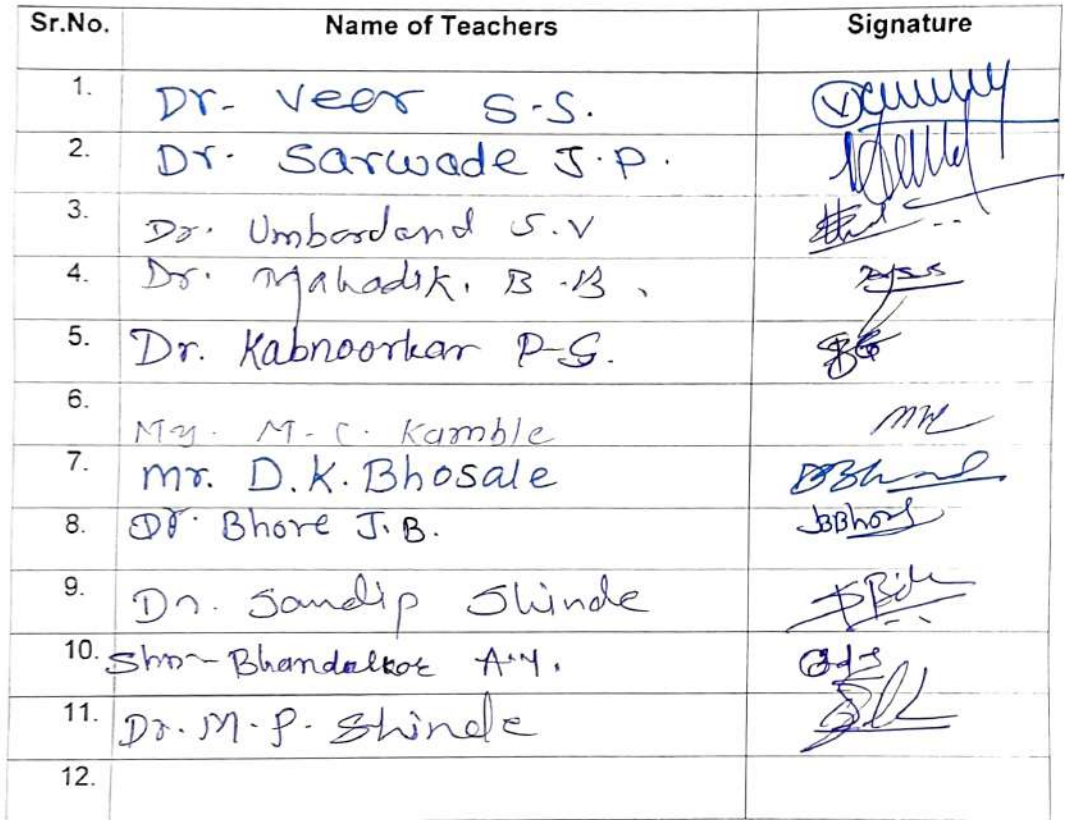 Sr.No. Name of Teachers Signature
1. Dr. Veer S.S.
2. Dr. Sarwade J.P.
3. Dr. Umbardand S.V
4. Dr. Mahadik. B.B.
5. Dr. Kabnoorkar P.G.
6. Mr. M.C. Kamble
7. mr. D.K. Bhosale
8. Dr. Bhore J.B. JBBhore
9. Dr. Sandip Shinde
10. Shri Bhandalkar A.Y.
11. Dr. M.P. Shinde
12.